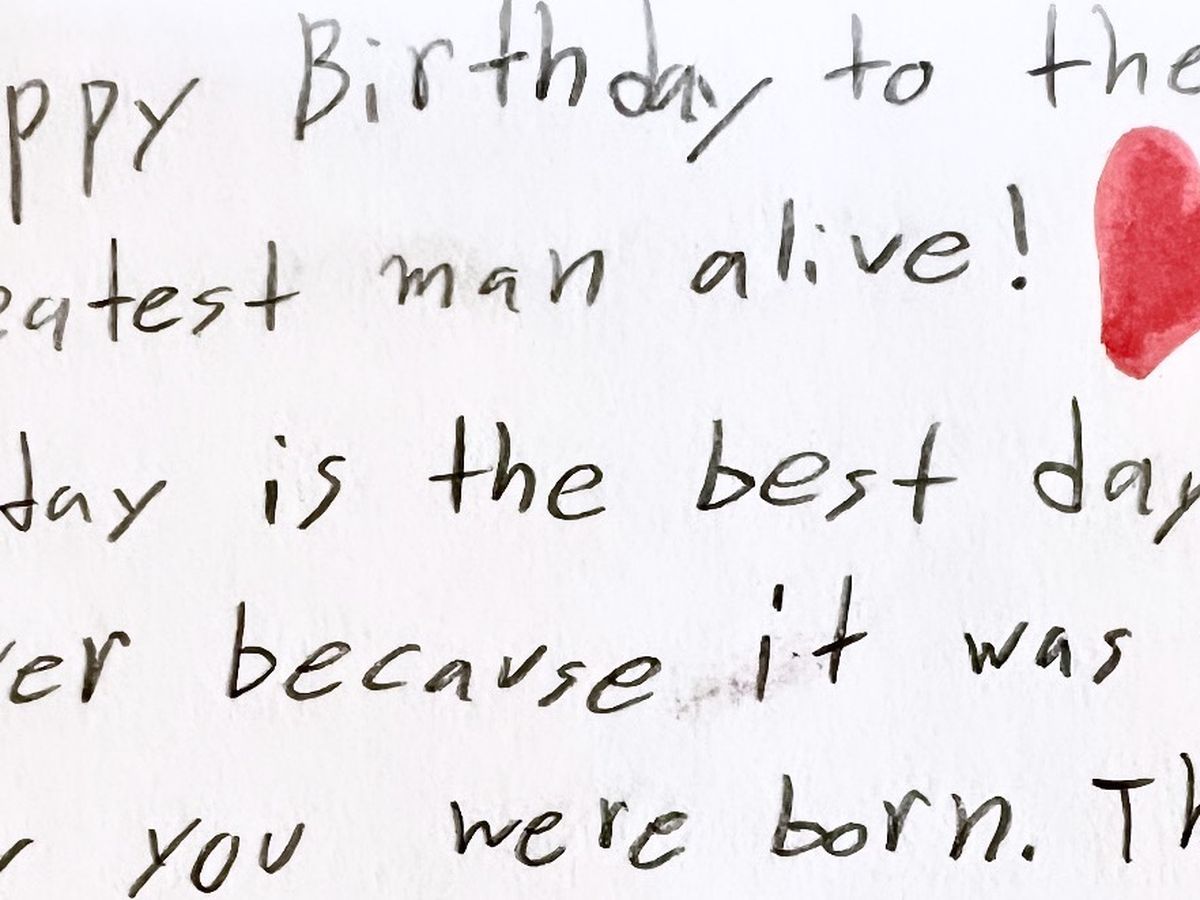 ppy Birthday to the
eatest man alive!
day is the best day
ver because it was
y you were born. Th